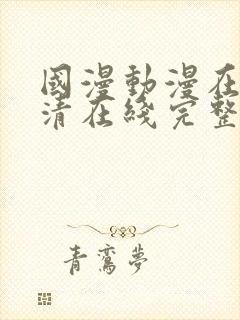 國漫動漫在
清在綫完整
青鸞夢